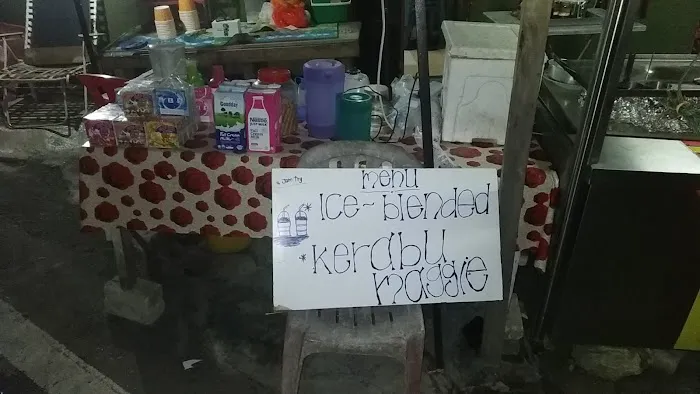 menu
* ICE~blended
* Kerabu
maggie